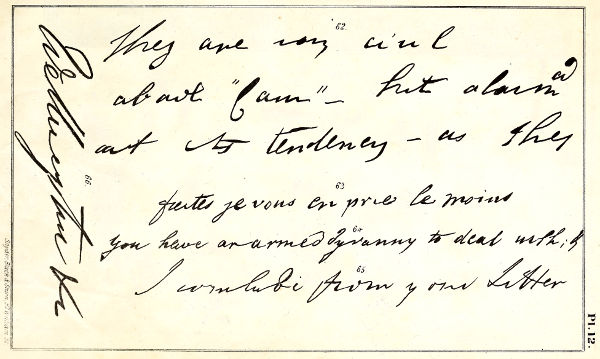 62.
They are very civil
about "Cain" – but alarmed
at its tendency – as they
63
faites je vous en prie le moins
64
you have an armed Tyranny to deal with; &
65
I conclude from your Letter
66.
Wellington &c
Pl. 12.